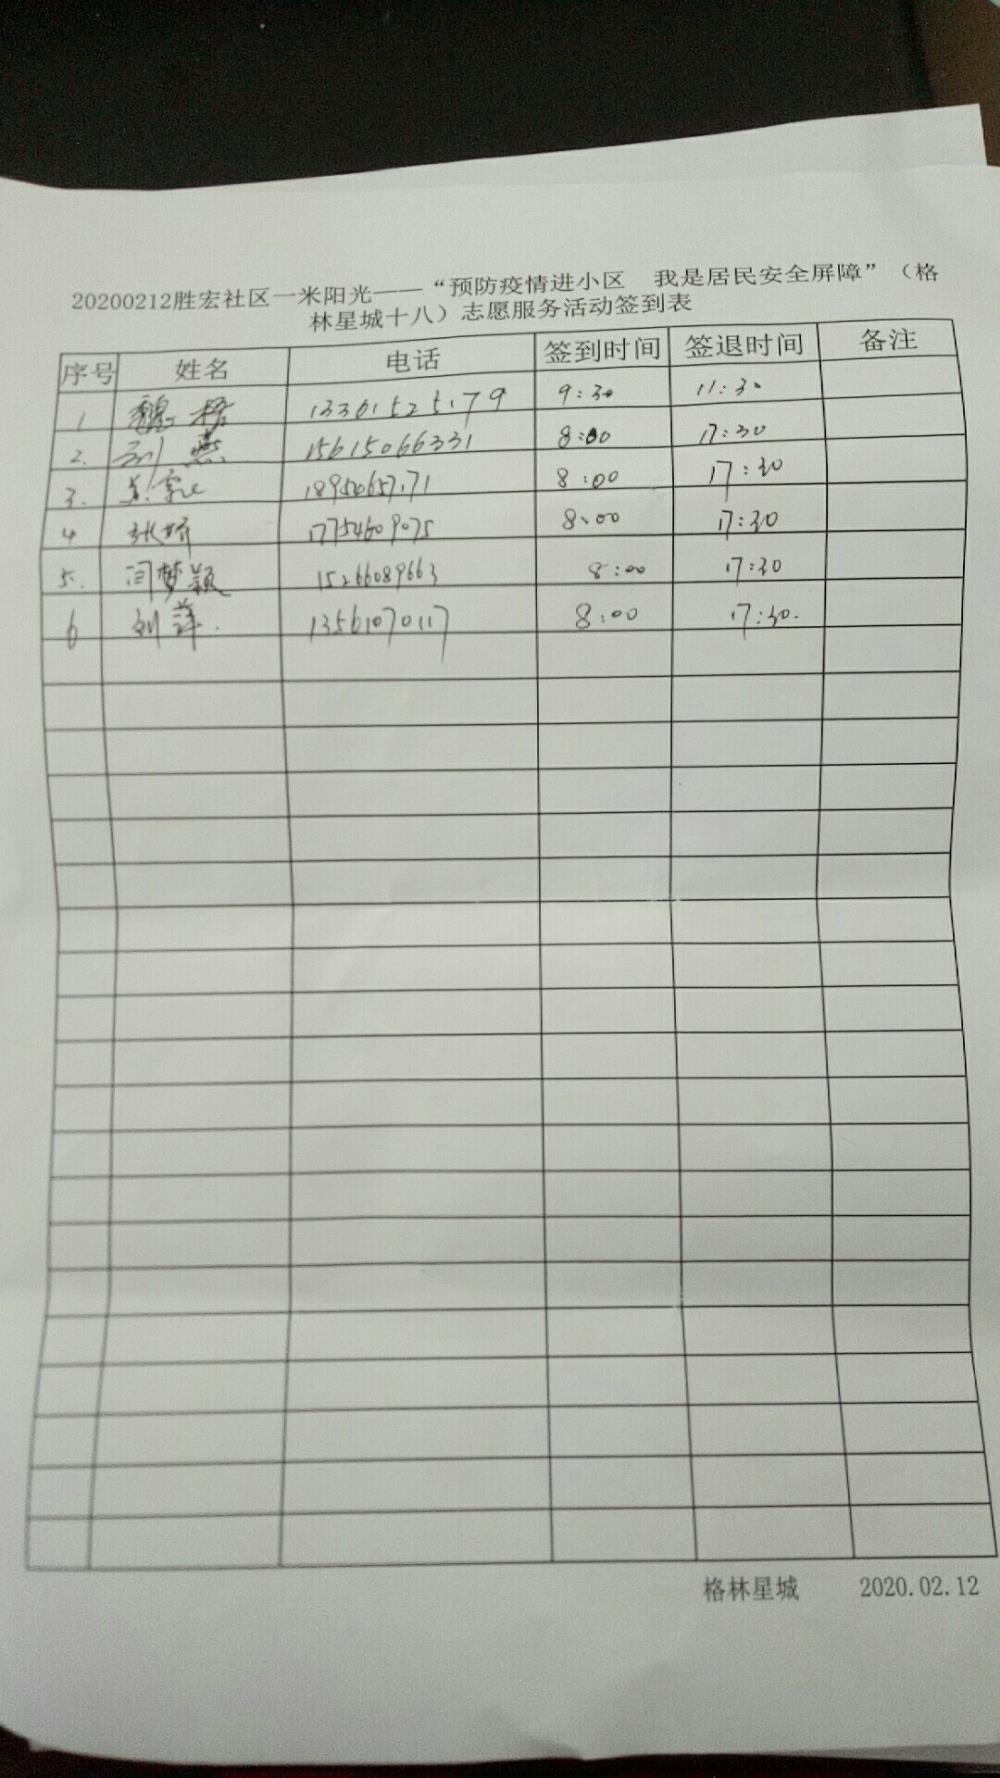 20200212胜宏社区一米阳光——“预防疫情进小区 我是居民安全屏障”（格
林星城十八）志愿服务活动签到表
序号 姓名 电话 签到时间 签退时间 备注
1 魏 9:30 11:30
2. 刘燕 15615066331 8:00 17:30
3. 8:00 17:30
4 张娇 17754609075 8:00 17:30
5. 闫梦颖 15266089663 8:00 17:30
6 刘萍. 13561070117 8:00 17:30.
格林星城 2020.02.12